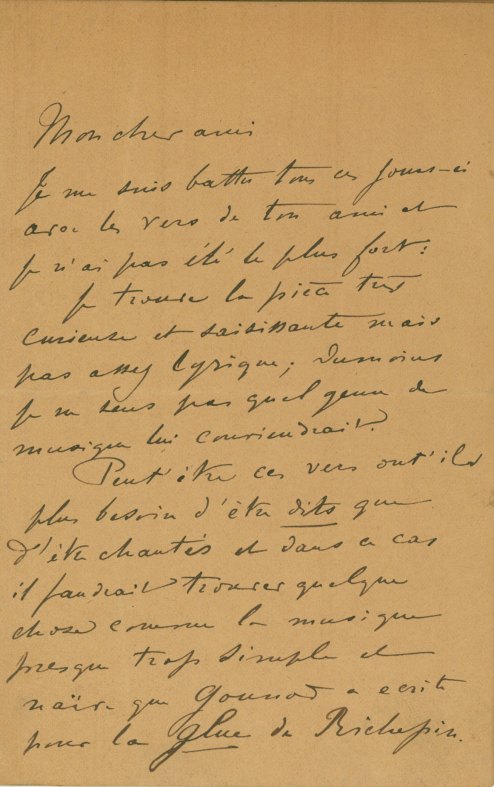 Mon cher ami
Je me suis battu tous ces jours-ci
avec les vers de ton ami et
je n'ai pas été le plus fort :
Je trouve la pièce très
curieuse et saisissante mais
pas assez lyrique ; dumoins
je ne sens pas quel genre de
musique lui conviendrait.
Peut'être ces vers ont'ils
plus besoin d'être dits que
d'être chantés et dans ce cas
il faudrait trouver quelque
chose comme la musique
presque trop simple et
naïve que Gounod a ecrite
pour la glue de Richepin.